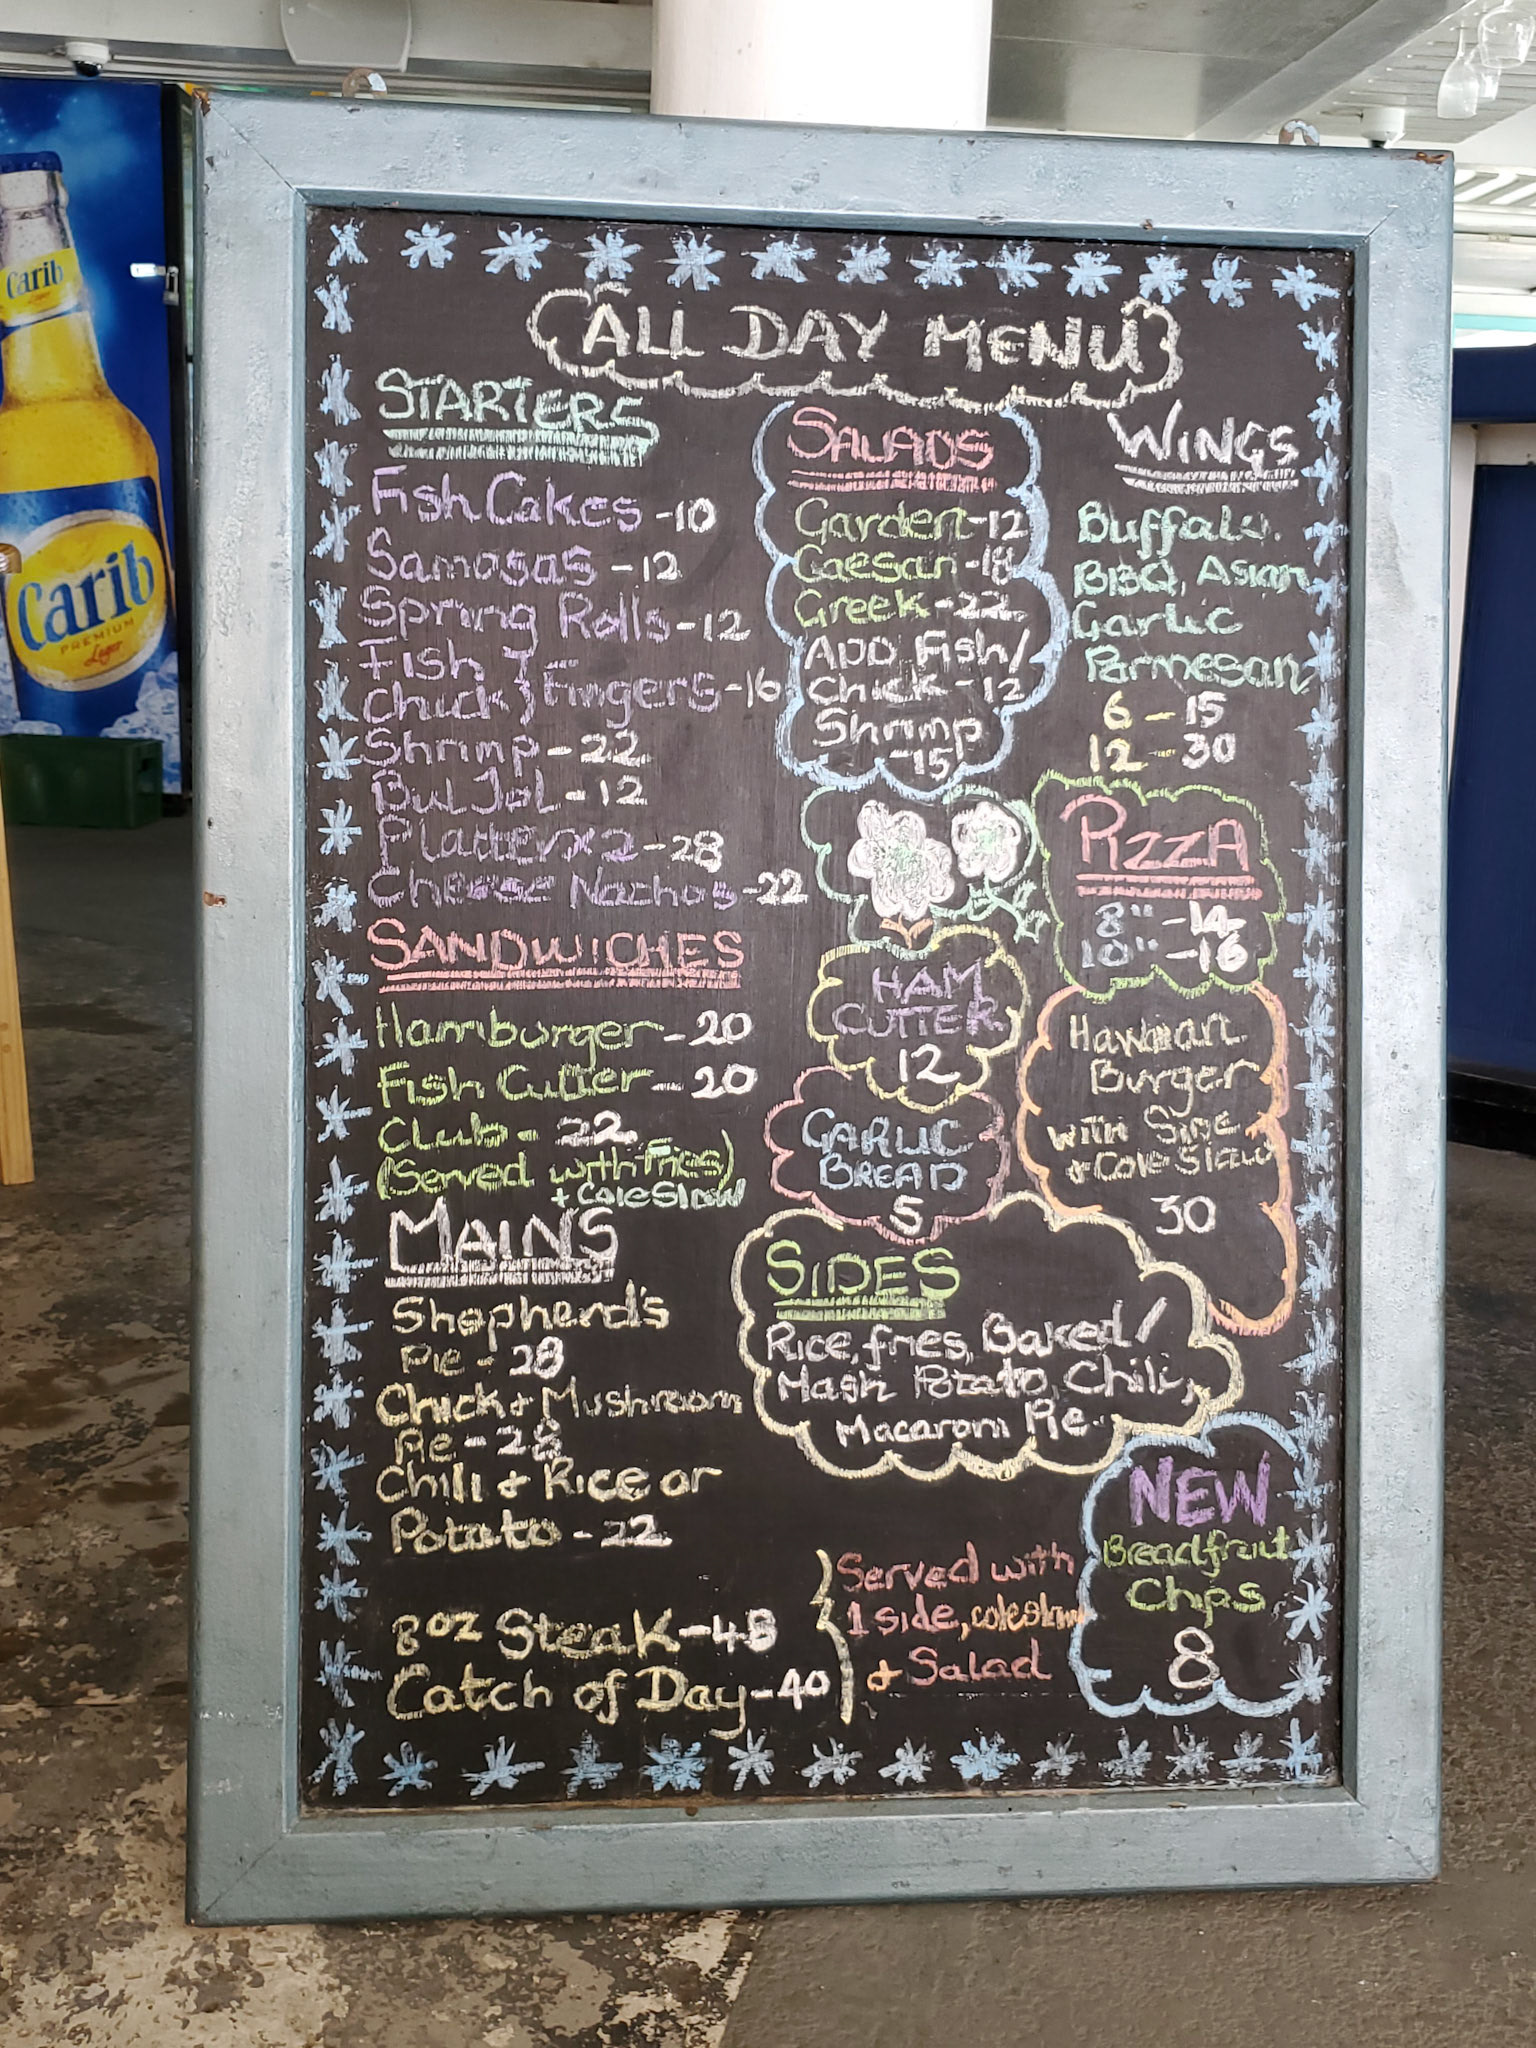 ALL DAY MENU
STARTERS
Fish Cakes -10
Samosas -12
Spring Rolls -12
Fish
Chick } Fingers -16
Shrimp - 22
Bul Jol - 12
Platter x 2 - 28
Cheese Nachos -22
SANDWICHES
Hamburger - 20
Fish Cutter - 20
Club - 22
(Served with Fries)
+ ColeSlaw
MAINS
Shepherd's
Pie - 28
Chick + Mushroom
Pie - 28
Chili + Rice or
Potato - 22
8oz Steak - 48
Catch of Day - 40
Served with
1 side, coleslaw
+ Salad
SALADS
Garden -12
Caesar -18
Greek -22
ADD Fish/
Chick - 12
Shrimp
-15
HAM
CUTTER
12
GARLIC
BREAD
5
SIDES
Rice, fries, Baked/
Mash Potato, Chili,
Macaroni Pie
WINGS
Buffalo.
BBQ, Asian
Garlic
Parmesan
6 - 15
12 - 30
PIZZA
8" -14
10" -16
Hawaiian
Burger
with Side
+ Cole Slaw
30
NEW
Breadfruit
Chips
8
Carib
Lager
Carib
PREMIUM
Lager